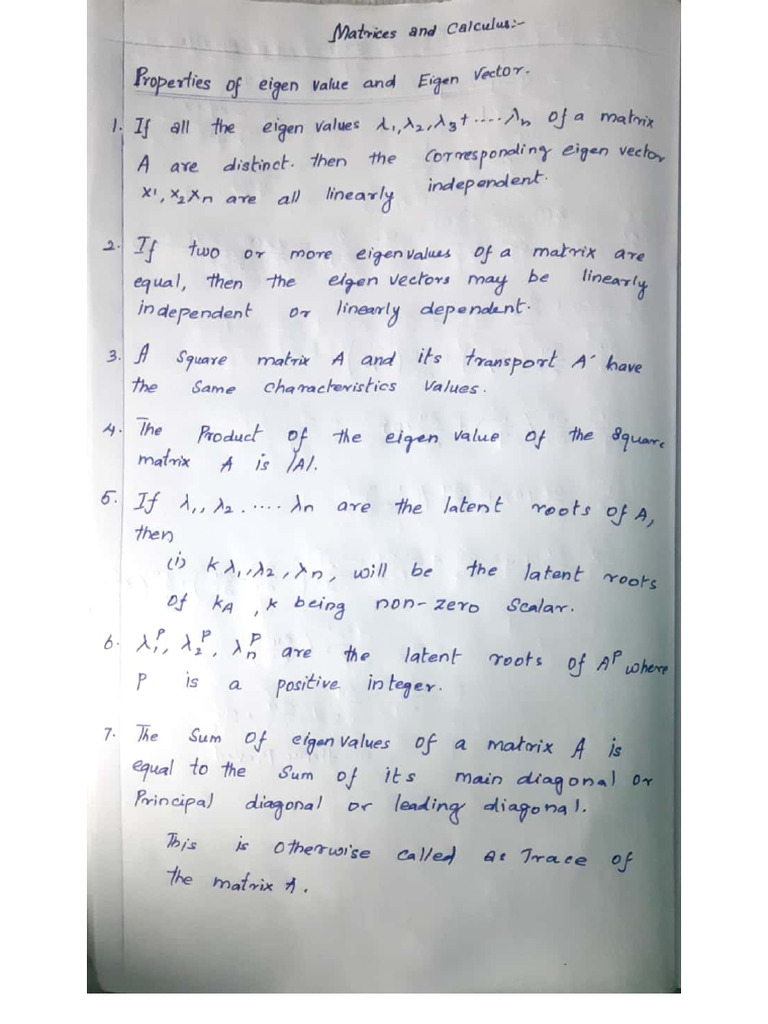 Matrices and Calculus:-
Properties of eigen value and Eigen Vector.
1. If all the eigen values λ₁,λ₂,λ₃+....λn of a matrix
A are distinct. then the corresponding eigen vector
x¹, x₂xn are all linearly independent.
2. If two or more eigenvalues of a matrix are
equal, then the eigen vectors may be linearly
independent or linearly dependent.
3. A Square matrix A and its transport A' have
the same characteristics values.
4. The Product of the eigen value of the square
matrix A is |A|.
5. If λ₁, λ₂.....λn are the latent roots of A,
then
(i) kλ₁,λ₂,λn, will be the latent roots
of kA, k being non-zero scalar.
6. λ₁ᵖ, λ₂ᵖ, λnᵖ are the latent roots of Aᵖ where
P is a positive integer.
7. The Sum of eigenvalues of a matrix A is
equal to the sum of its main diagonal or
Principal diagonal or leading diagonal.
This is otherwise called as Trace of
the matrix A.